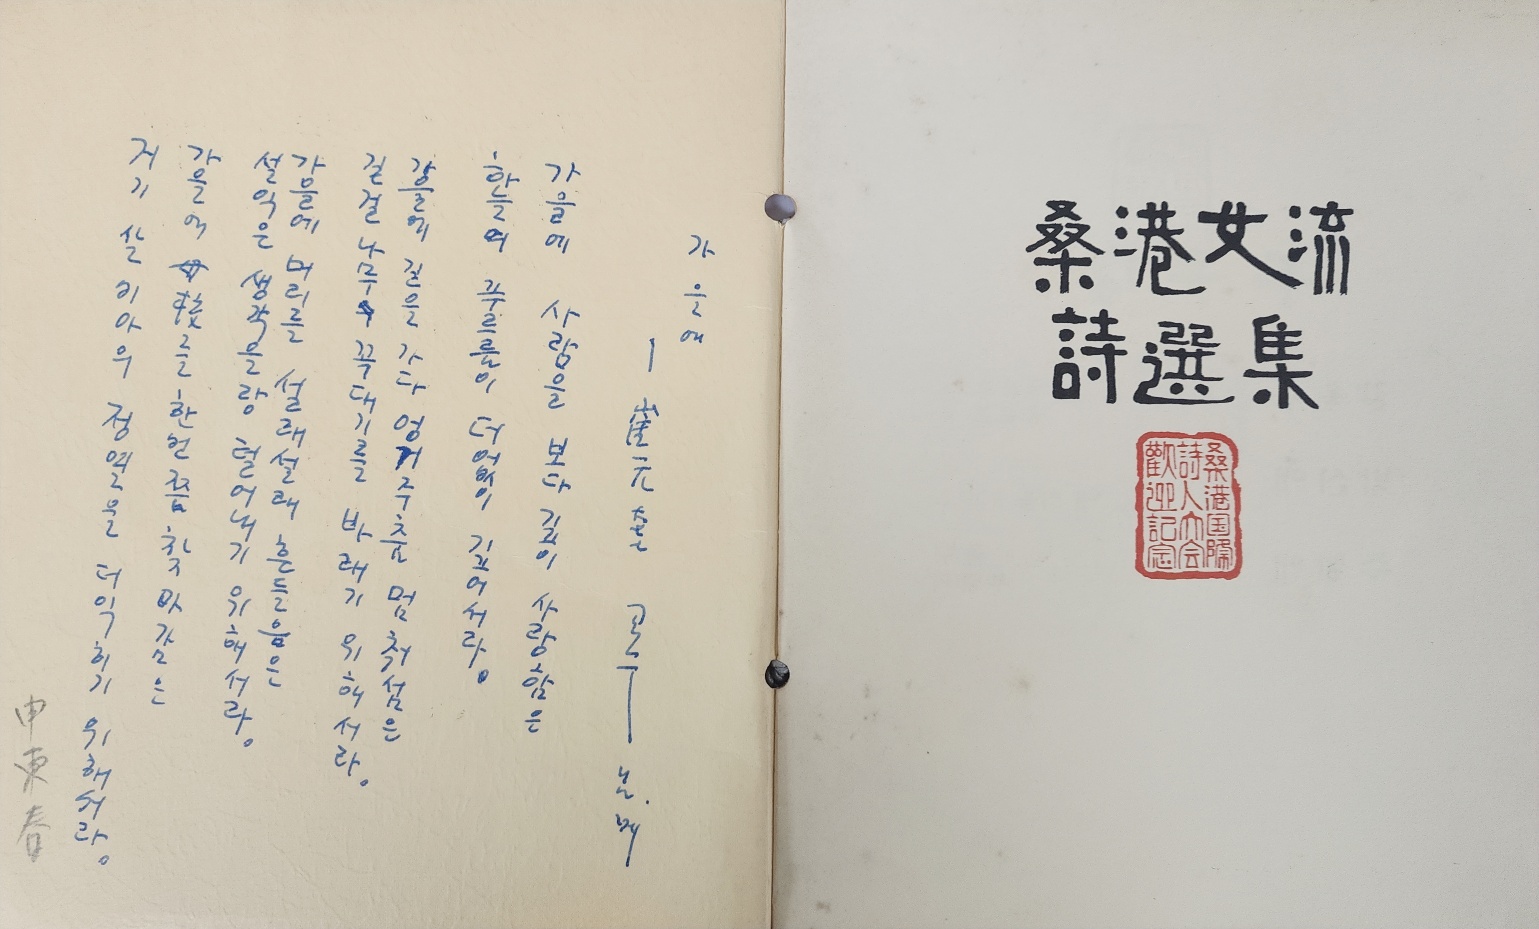 가을에
崔元 교수 님께
가을에 사람을 보다 깊이 사랑함은
하늘의 푸르름이 더없이 깊어서라。
가을에 길을 가다 엉거주춤 멈춰섬은
길걸 나무의 꼭대기를 바래기 위해서라。
가을에 머리를 설래설래 흔들음은
설익은 생각을랑 털어내기 위해서라。
가을에 母校를 한번쯤 찾아감은
저기 살비아의 정열을 더 익히기 위해서라。
申東春
桑港女流
詩選集
桑港国際
詩人大会
歡迎記念